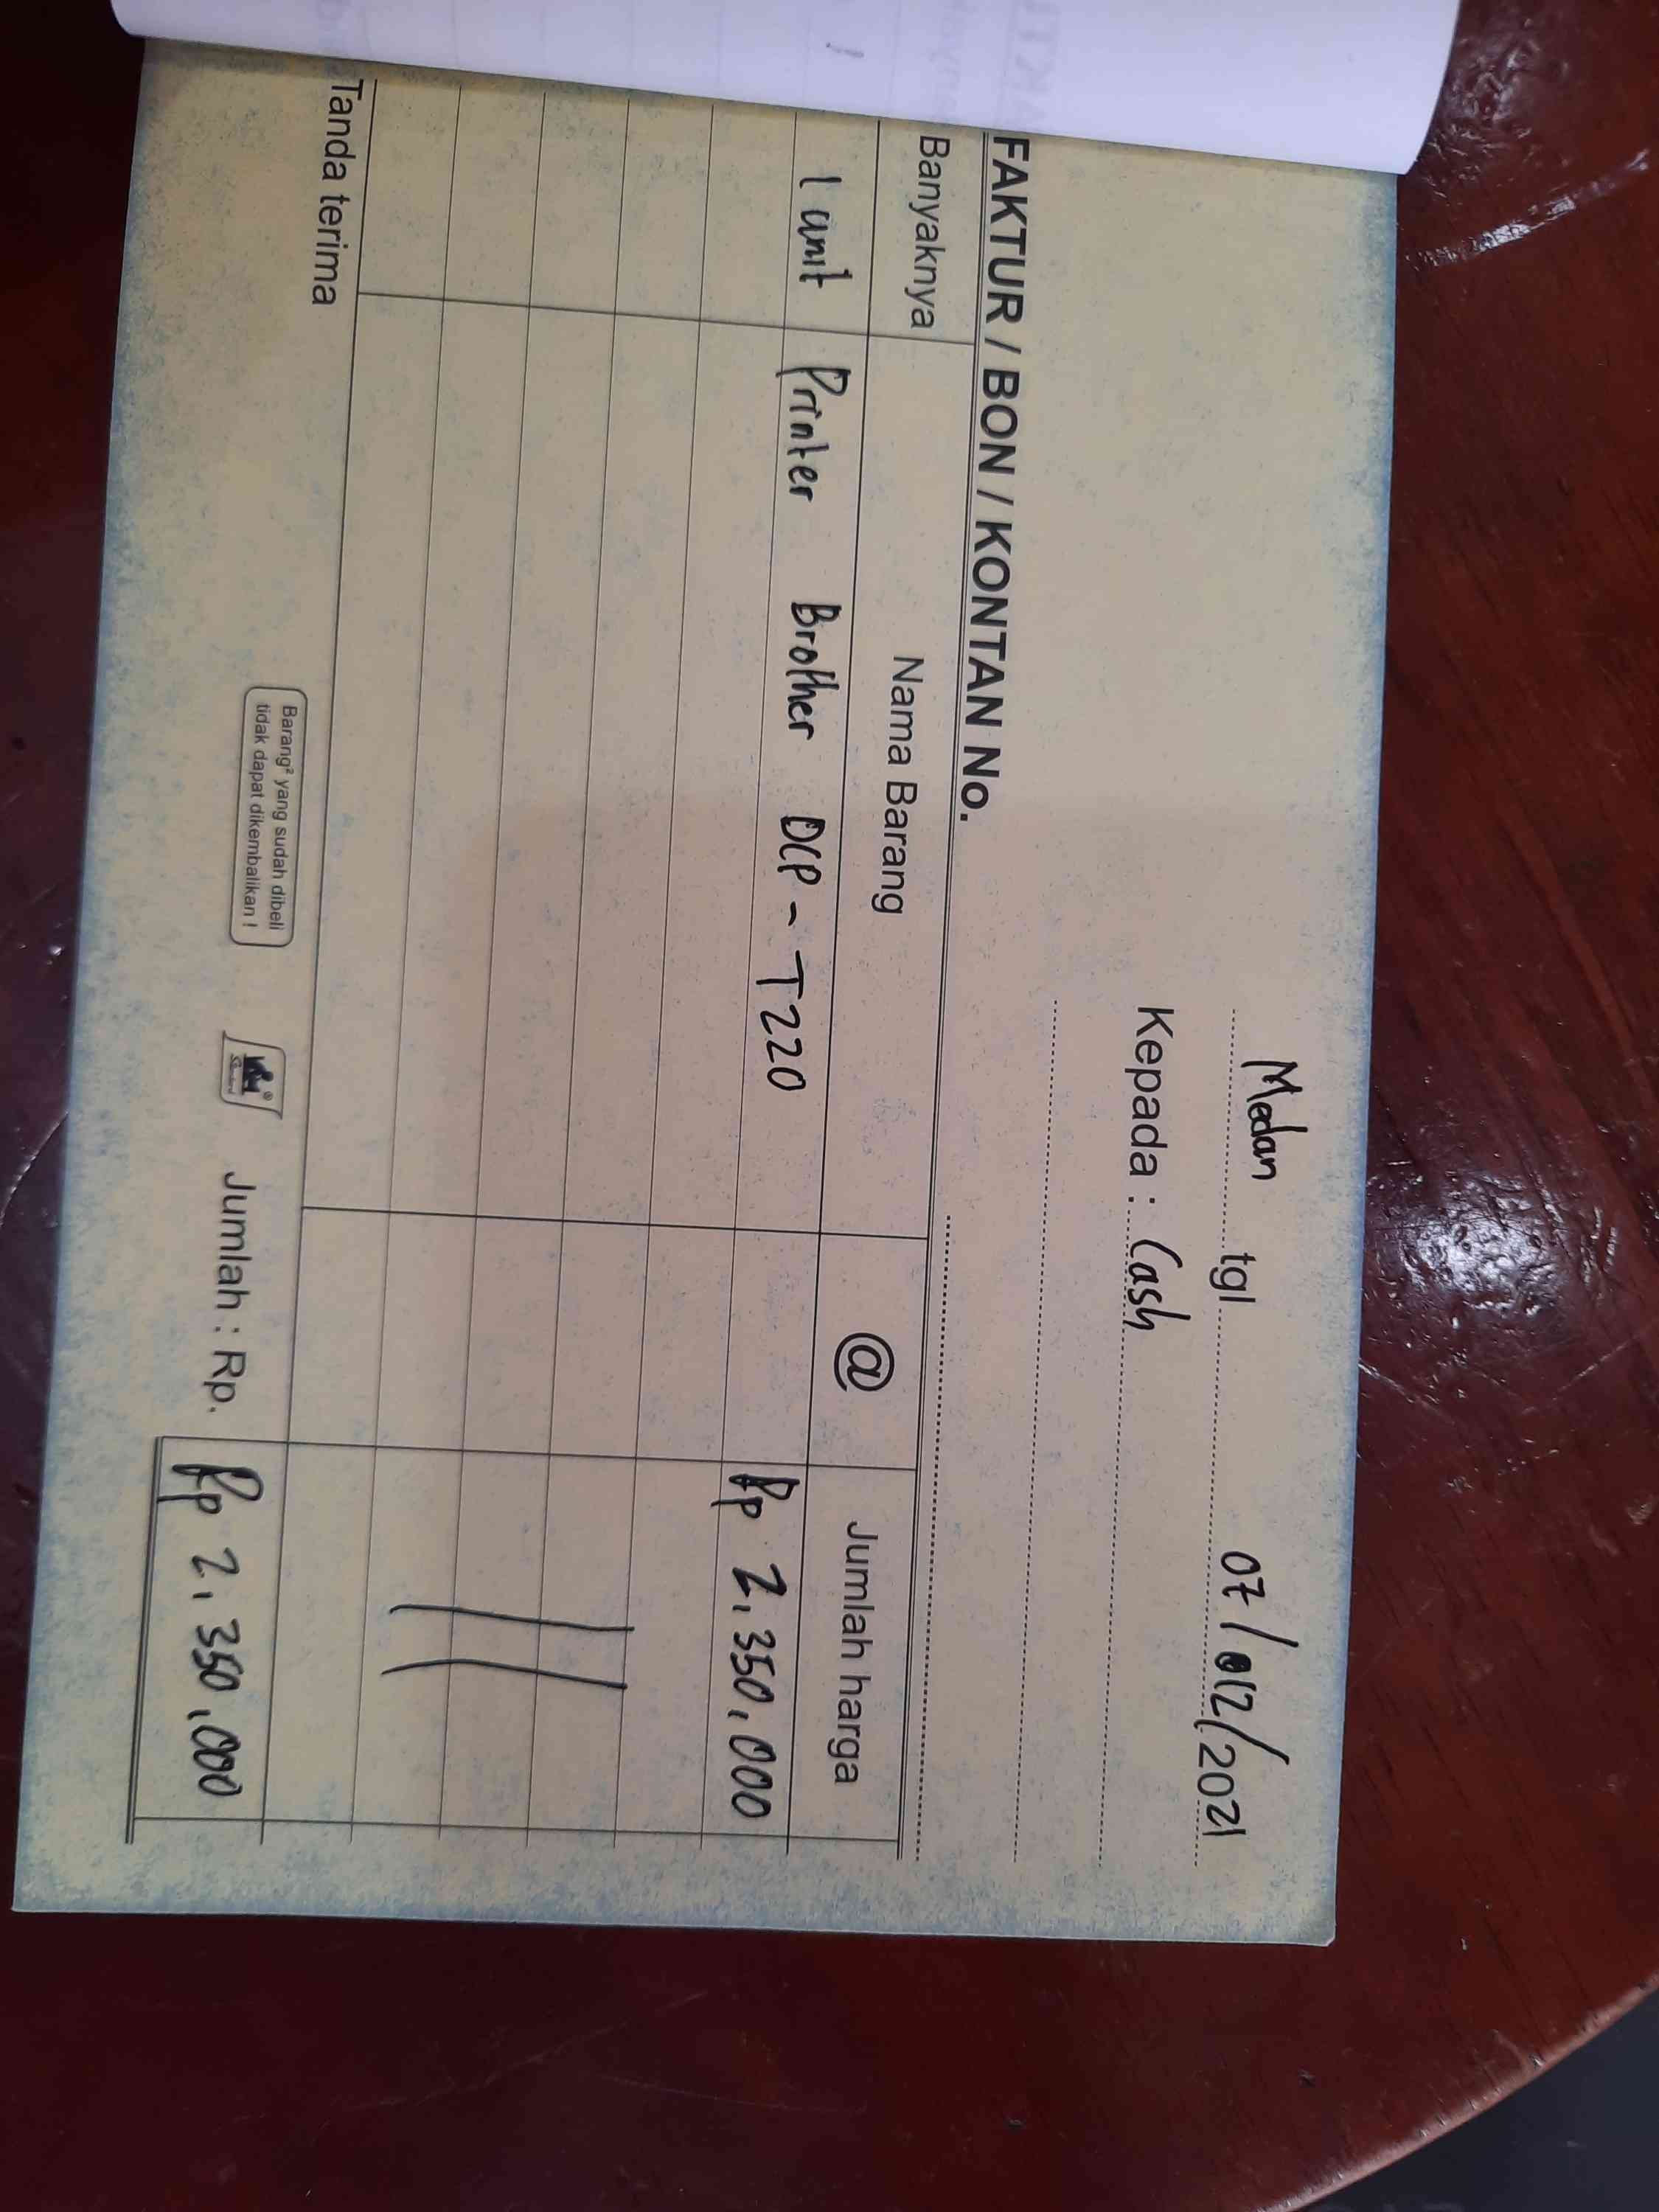 Medan tgl 07/12/2021
Kepada : Cash
FAKTUR / BON / KONTAN No.
Banyaknya Nama Barang @ Jumlah harga
1 unit Printer Brother DCP - T220 Rp 2.350.000
Tanda terima
Barang² yang sudah dibeli
tidak dapat dikembalikan !
Jumlah : Rp. Rp 2.350.000